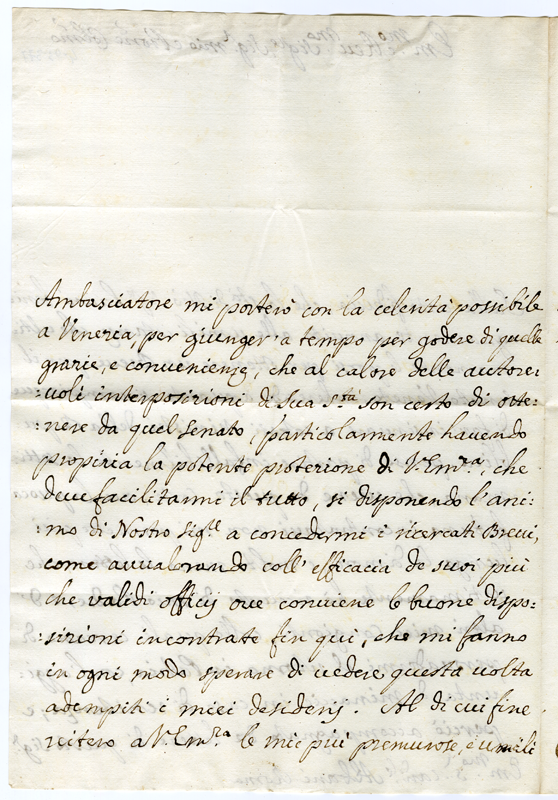 Ambasciatore mi porterò con la celerità possibile
a Venezia, per giunger a tempo per godere di quelle
grazie, e convenienze, che al calore delle autore:
:uoli interposizioni di Sua S.tà son certo di otte:
:nere da quel Senato, particolarmente havendo
propizia la potente protezione di V. Em.za, che
deve facilitarmi il tutto, si disponendo l'ani:
mo di Nostro Sig.re a concedermi i ricercati Brevi,
come avvalorando coll'efficacia de suoi più
che validi officij ove conviene le buone dispo:
:sizioni incontrate fin qui, che mi fanno
in ogni modo sperare di vedere questa volta
adempiti i miei desiderij. Al di cui fine
reitero a V. Em.za le mie più premurose, e umili